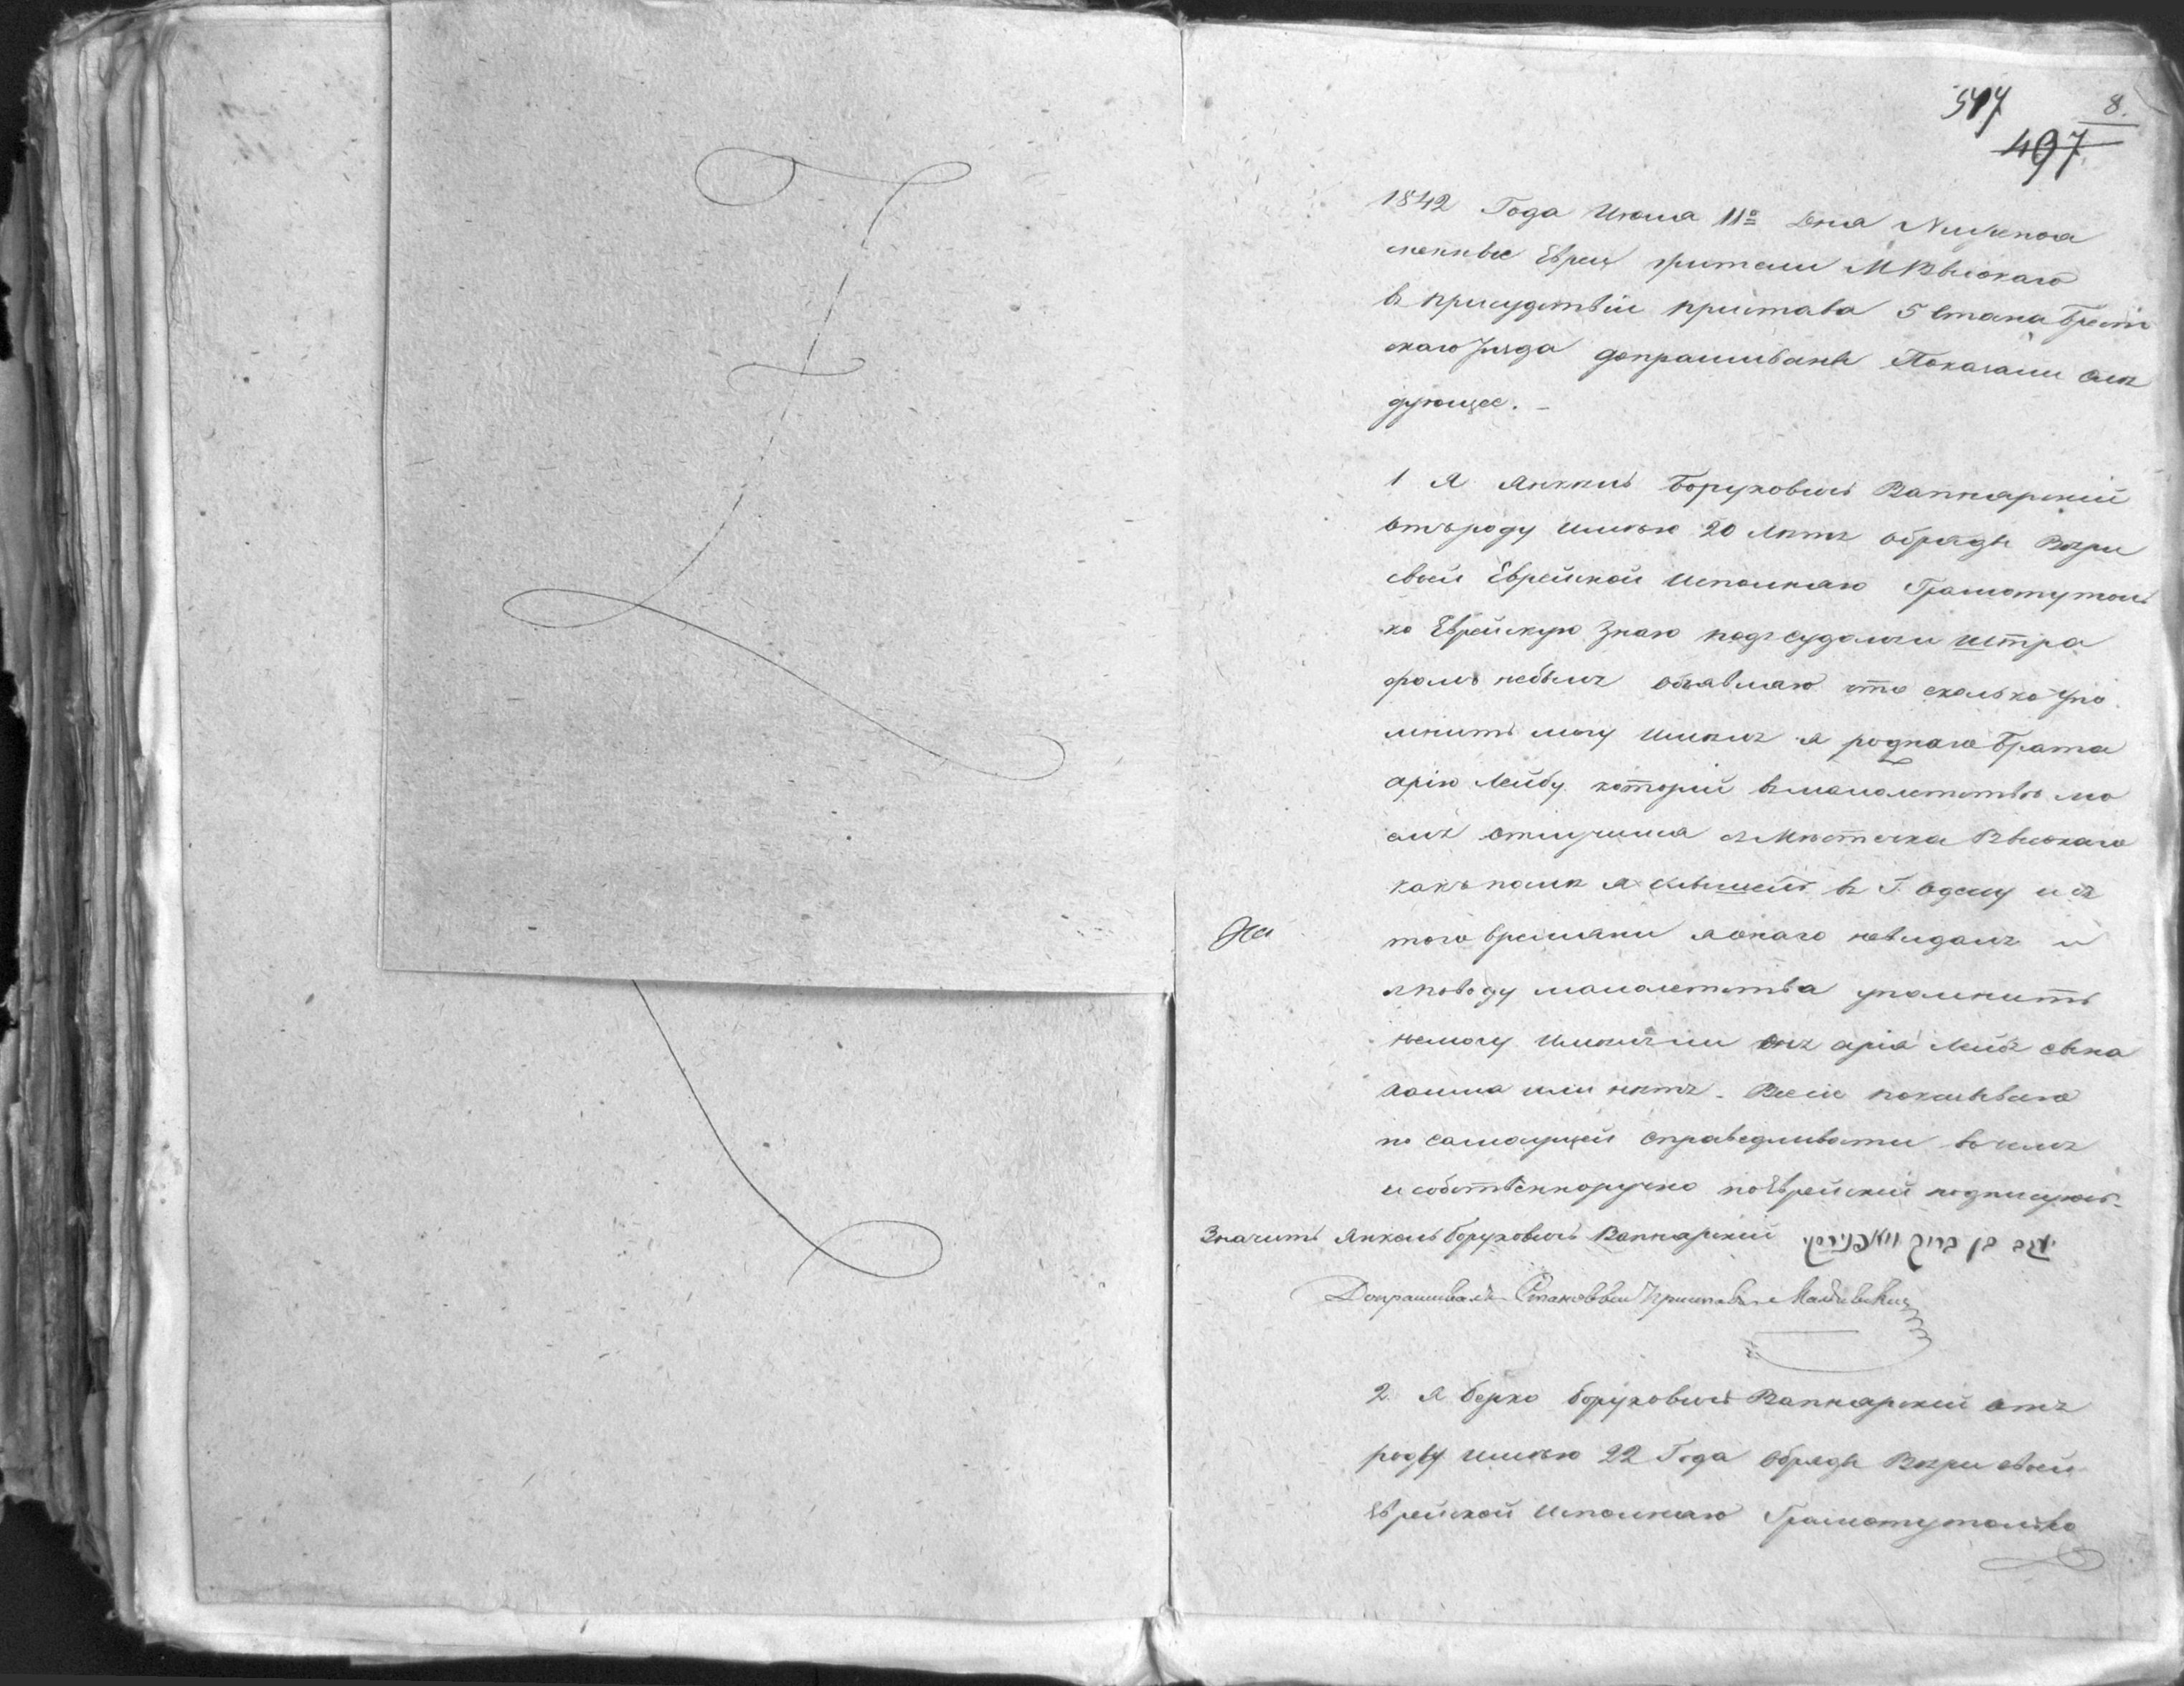 547
8.
497
1842 Года Июля 11º Дня Нижепоя
сненные Евреи жители М Высокаго
въ присудствіи пристава 5 Стана Брест
скаго Уѣзда допрашиваны Показали слѣ
дующее. –
1 Я Янкель Боруховичъ Вапнярскій
отъ роду имѣю 20 лѣтъ обряды Вѣры
своей Еврейской исполняю Грамоту толь
ко Еврейскую Знаю подъ судомъ и штра
фомъ небылъ объявляю что сколько упо
мнить могу имѣлъ я роднаго Брата
Арію Лейбу который въ малолетствѣ мо
емъ отлучился съ Мѣстечка Высокаго
какъ я слышелъ въ Г. Одесу и съ
того времяни я онаго невидалъ и
по поводу малолетства упомнить
немогу имѣлъ ли онъ Арія Лейб сына
или нетъ. Все сіе показываю
по самоущей справедливости въ чемъ
и собственноручно поЕврейский подписуюсь
Значитъ Янкель Боруховичъ Вапнярский יעקב בן ברוך וואפנירסקי
Допрашивалъ Становой Приставъ
2 Я Берко Боруховичъ Вапнярский отъ
роду имѣю 22 Года обряды Вѣры своей
Еврейской исполняю Грамоту только